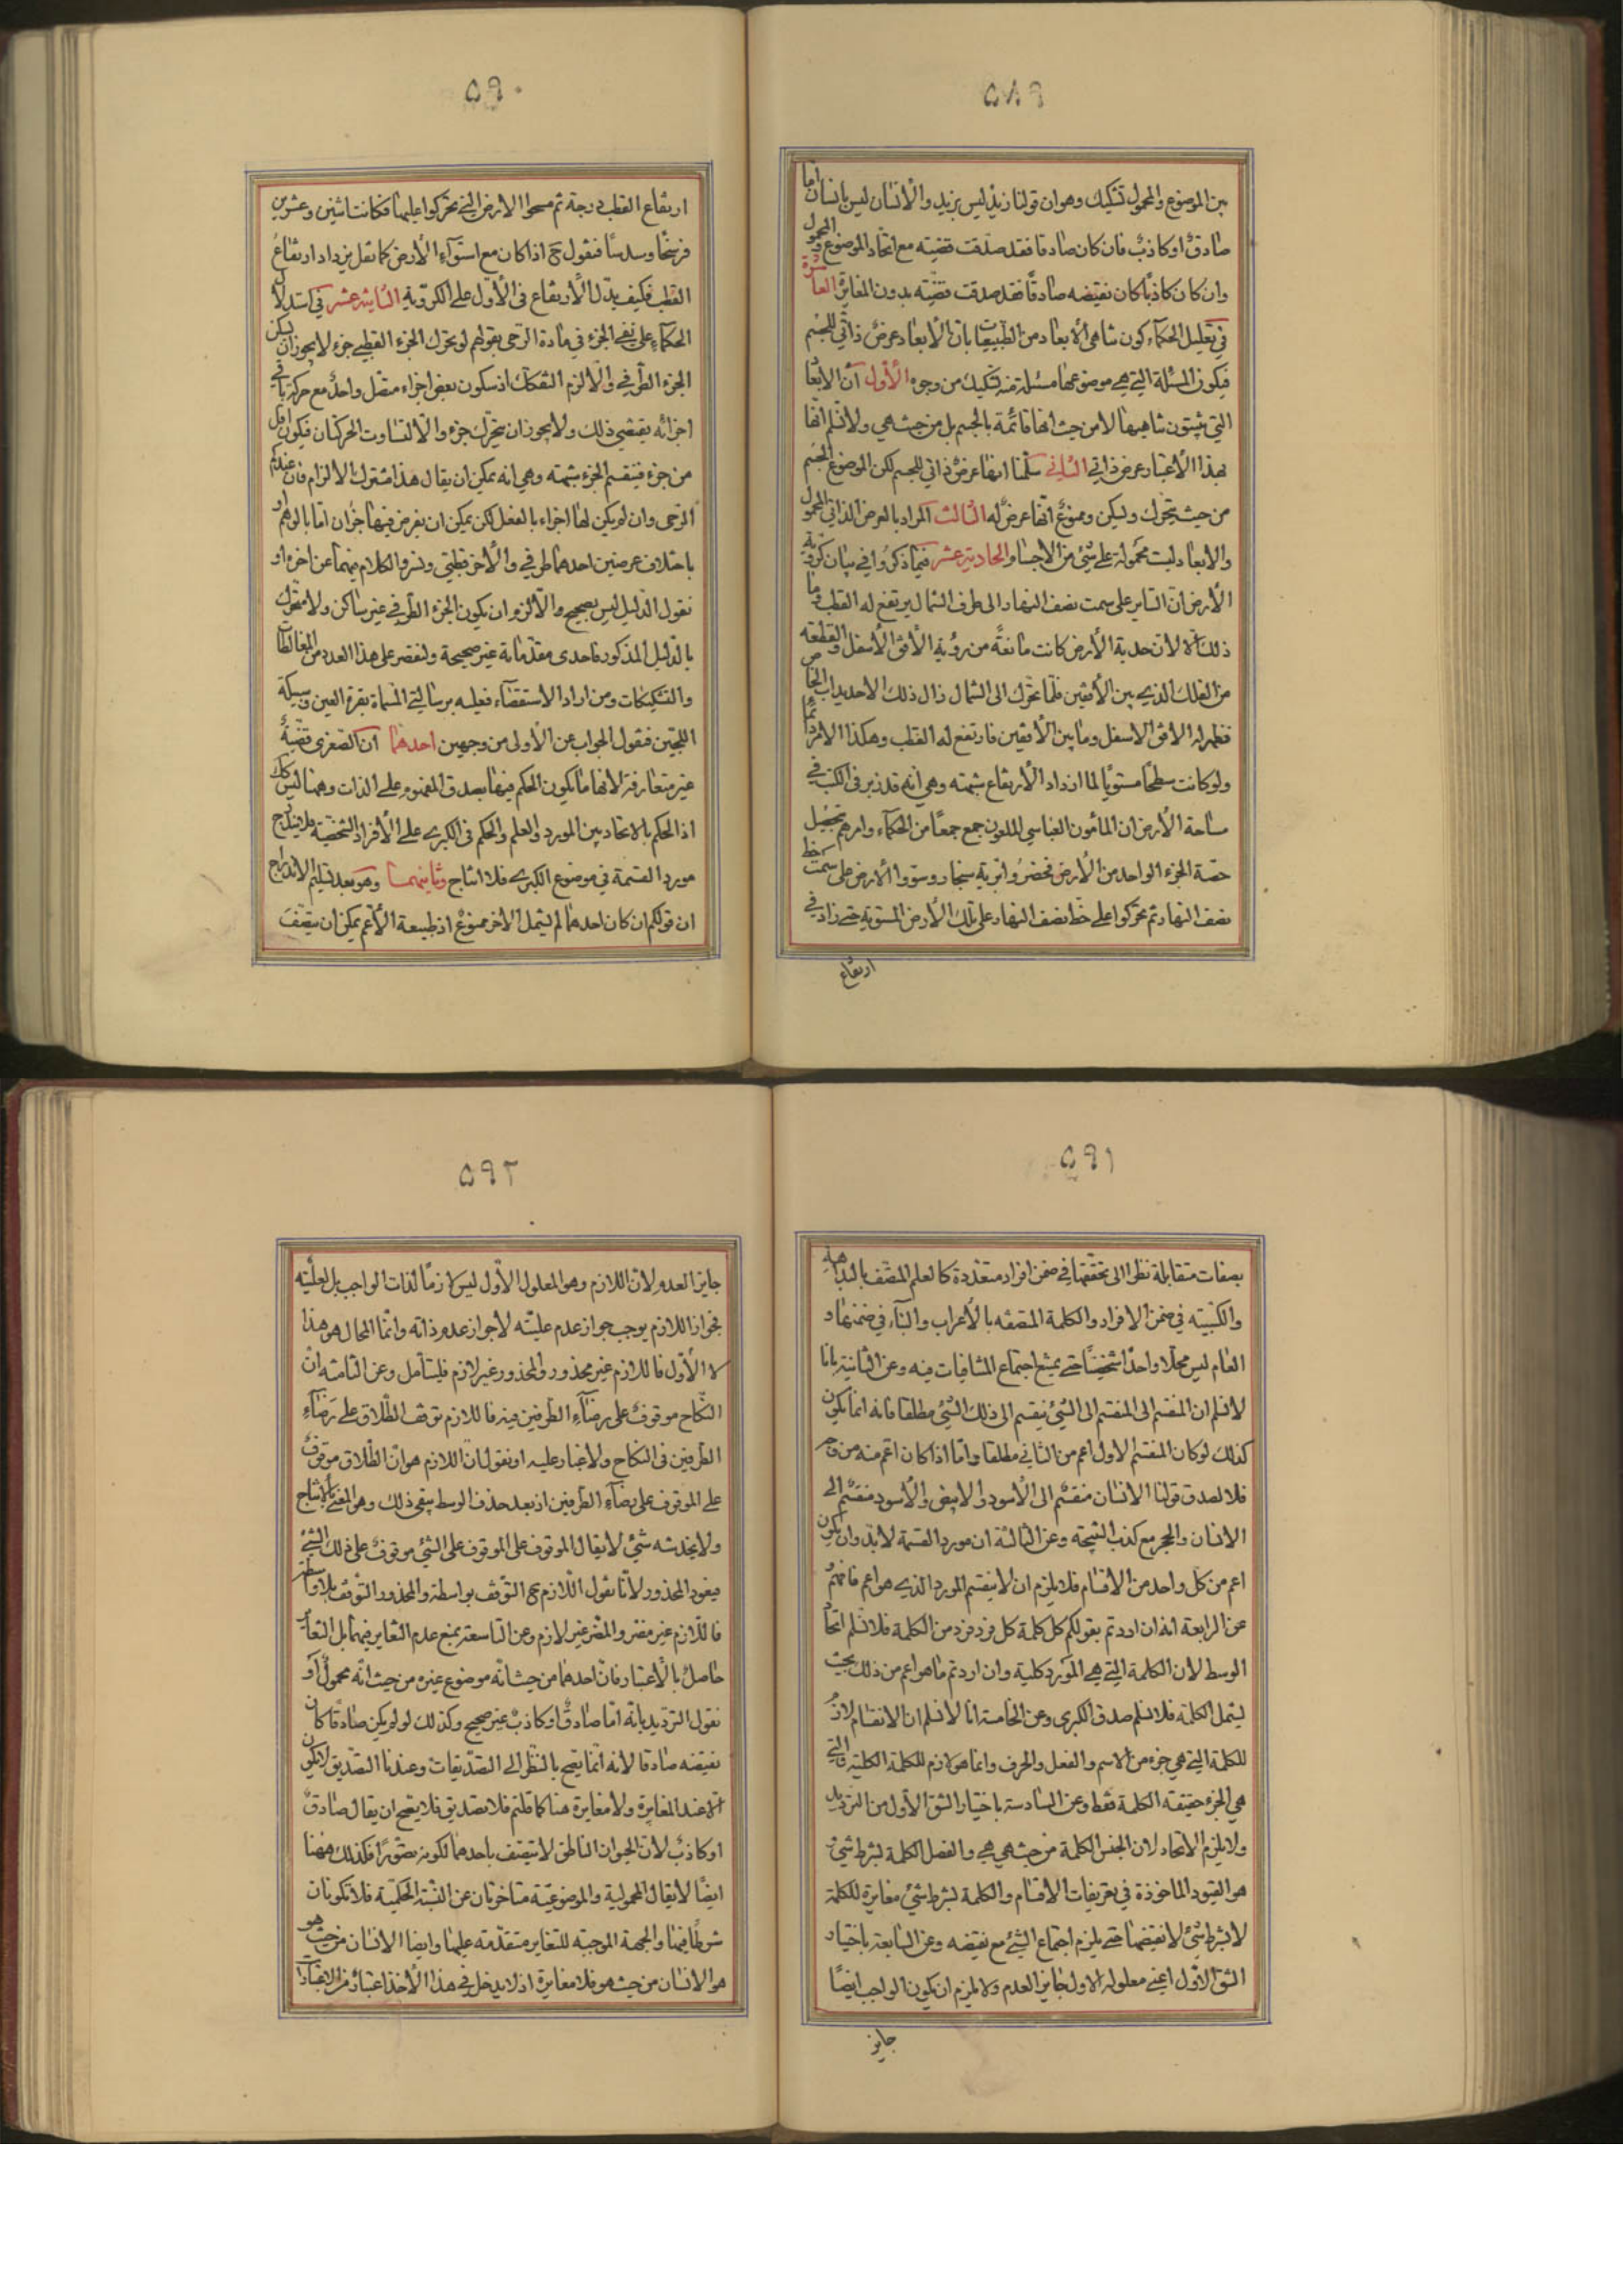 ٥٨٩
بين الموضوع والمحمول تشكيك وهو ان قولنا زيد ليس بزيد والأنسان ليس بانسان اما
صادق او كاذب فان كان صادقا فقد صدقت قضيته مع اتحاد الموضوع والمحمول
وان كان كاذبا كان نقيضه صادقا فقد صدقت قضيته بدون المغايرة العاشرة
في تعليل الحكماء كون تناهى الأبعاد من الطبيعيات بان الأبعاد عرض ذاتي للجسم
فيكون المسئلة التي هي موضوعها مسئلة منه تشكيك من وجوه الأول ان الابعاد
التي يثبتون تناهيها لا من حيث انها قائمة بالجسم بل من حيث هي ولا نسلم انها
بهذا الأعتبار عرض ذاتي الثاني سلمنا انها عرض ذاتي للجسم لكن الموضوع الجسم
من حيث يتحرك ويسكن وممنوع انها عرض له الثالث المراد بالعرض الذاتي المحمول
والابعاد ليست محمولة على شئ من الاجسام والحادية عشر فيما ذكروا في بيان كروية
الأرض ان الساير على سمت نصف النهار الى طرف الشمال يرتفع له القطب وما
ذلك الا لان حدبة الأرض كانت مانعة من رؤية الأفق الأسفل والقطعة
من الفلك الذي بين الأفقين فلما تحرك الى الشمال زال ذلك الاحديداب
فظهر له الافق الاسفل وما بين الأفقين فارتفع له القطب وهكذا الامر دائما
ولو كانت سطحا مستويا لما ازداد الأرتفاع بتمته وهي انه قد زبر في الكتب في
مساحة الأرض ان المأمون العباسي الملعون جمع جمعا من الحكماء وامرهم بتحصيل
حصة الجزء الواحد من الأرض فحضروا برية سنجار وسووا الارض على سمت خط
نصف النهار ثم تحركوا على خط نصف النهار على تلك الأرض المستوية حتى زاد في
ارتفاع
٥٩٠
ارتفاع القطب درجة ثم مسحوا الارض التي تحركوا عليها فكانت اثنين وعشرين
فرسخا وسدسا فنقول ح اذا كان مع استواء الأرض كما نقل يزداد ارتفاع
القطب فكيف يدل الأرتفاع في الأول على الكروية الثانية عشر في استدلال
الحكماء على نفي الجزء في مادة الرحى بقولهم لو تحرك الجزء القطبي جزء لا يجوز ان يسكن
الجزء الطرفي والا لزم التفكك اذ سكون بعض اجزاء متصل واحد مع حركة باقي
اجزائه يقتضي ذلك ولا يجوز ان يتحرك جزء والا لتساوت الحركتان فيكون اقل
من جزء فينقسم الجزء بتمته وهي انه يمكن ان يقال هذا مشترك الالزام فان عندكم
الرحى وان لم يكن لها اجزاء بالفعل لكن يمكن ان يفرض فيها جزءان اما بالوهم او
باختلاف عرضين احدهما طرفي والأخر قطبي ونسرد الكلام فيهما عن اخره او
نقول الدليل ليس بصحيح والا لزم ان يكون الجزء الطرفي غير ساكن ولا متحرك
بالدليل المذكور فاحدى مقدماته غير صحيحة ولنقتصر على هذا العدد من المغالطات
والتشكيكات ومن اراد الاستقصاء فعليه برسالتي المسماة بقرة العين وسبيكة
اللجين فنقول الجواب عن الأولى من وجهين احدهما ان الصغرى قضية
غير متعارفة لانها ما يكون الحكم فيها بصدق المفهوم على الذات وهنا ليس كذلك
اذ الحكم بالاتحاد بين المورد والعلم والحكم في الكبرى على الأفراد الشخصية فلا يندرج
مورد القسمة في موضوع الكبرى فلا انتاج وثانيهما وهو بعد تسليم الاندراج
ان قولكم ان كان احدهما لم يشمل الاخر ممنوع اذ طبيعة الأعم يمكن ان يتصف
٥٩١
بصفات متقابلة نظرا الى تحققها في ضمن افراد متعددة كالعلم المتصف بالبداهة
والكسبية في ضمن الافراد والكلمة المتصفة بالأعراب والبناء في ضمنها و
العام ليس محلا واحدا شخصيا حتى يمتنع اجتماع المتنافيات فيه وعن الثانية بانا
لا نسلم ان المنقسم الى المنقسم الى الشئ ينقسم الى ذلك الشئ مطلقا فانه انما يكون
كذلك لو كان المنقسم الاول اعم من الثاني مطلقا واما اذا كان اعم منه من وجه
فلا لصدق قولنا الانسان منقسم الى الأسود والابيض والأسود منقسم الى
الانسان والحجر مع كذب النتيجة وعن الثالثة ان مورد القسمة لا بد وان يكون
اعم من كل واحد من الأقسام فلا يلزم ان لا ينقسم المورد الذي هو اعم فافهم
عن الرابعة انه ان اردتم بقولكم كل كلمة كل فرد فرد من الكلمة فلا نسلم اتحاد
الوسط لان الكلمة التي هي المورد كلية وان اردتم ما هو اعم من ذلك بحيث
ليشمل الكلمة فلا نسلم صدق الكبرى وعن الخامسة انا لا نسلم ان الانقسام لازم
للكلمة التي هي جزء من الاسم والفعل والحرف وانما هو لازم للكلمة الكلية والتي
هي الجزء حقيقة الكلمة فقط وعن السادسة باختيار الشق الأول من الترديد
ولا يلزم الاتحاد لان الجنس الكلمة من حيث هي هي والفصل الكلمة بشرط شئ
هو القيود الماخوذة في تعريفات الاقسام والكلمة بشرط شئ مغايرة للكلمة
لا بشرط شئ لا نقيضها حتى يلزم اجتماع الشئ مع نقيضه وعن السابعة باختيار
الشق الأول اعني معلوله الاول جايز العدم ولا يلزم ان يكون الواجب ايضا
جايز
٥٩٢
جايز العدم لان اللازم وهو المعلول الأول ليس لازما لذات الواجب بل لعليته
فجواز اللازم يوجب جواز عدم عليته لا جواز عدم ذاته وانما المحال هو هذا
لا الأول فاللازم غير محذور والمحذور غير لازم فليتأمل وعن الثامنة ان
النكاح موقوف على رضاء الطرفين فيه فاللازم توقف الطلاق على رضاء
الطرفين في النكاح ولا غبار عليه او نقول ان اللازم هو ان الطلاق موقوف
على الموقوف على رضاء الطرفين اذ بعد حذف الوسط يبقى ذلك وهو المعني بالانتاج
ولا يخدشه شئ لا يقال الموقوف على الموقوف على الشئ موقوف على ذلك الشئ
فيعود المحذور لأنا نقول اللازم ح التوقف بواسطة والمحذور التوقف بلا واسطة
فاللازم غير مضر والمضر غير لازم وعن التاسعة بمنع عدم التغاير فيهما بل التغاير
حاصل بالأعتبار فان احدهما من حيث انه موضوع غيره من حيث انه محمول او
نقول الترديد بانه اما صادق او كاذب غير صحيح وكذلك لو لم يكن صادقا كان
نقيضه صادقا لانه انما يصح بالنظر الى التصديقات وعندنا التصديق لا يكون
الا عند المغايرة ولا مغايرة هنا كما قلتم فلا تصديق فلا يصح ان يقال صادق
او كاذب لأن الحيوان الناطق لا يتصف باحدهما لكونه تصورا فكذلك ههنا
ايضا لا يقال المحمولية والموضوعية متاخرتان عن النسبة الحكمية فلا تكونان
شرطا فيها والجهة الموجبة للتغاير متقدمة عليها وايضا الانسان من حيث هو
هو الانسان من حيث هو فلا مغايرة اذ لا يدخل في هذا الأخذ اعتبار من الاعتبارات